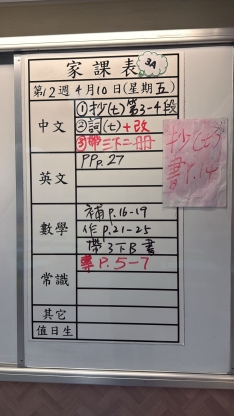 家課表 3A
第12週4月10日(星期五)
中文
①抄(七)第3-4段
②詞(七)+改
③帶三下二冊
抄(七)
書P.14
英文
PP p.27
數學
補 p.16-19
作 p.21-25
帶3下B書
常識
P.5-7
其它
值日生